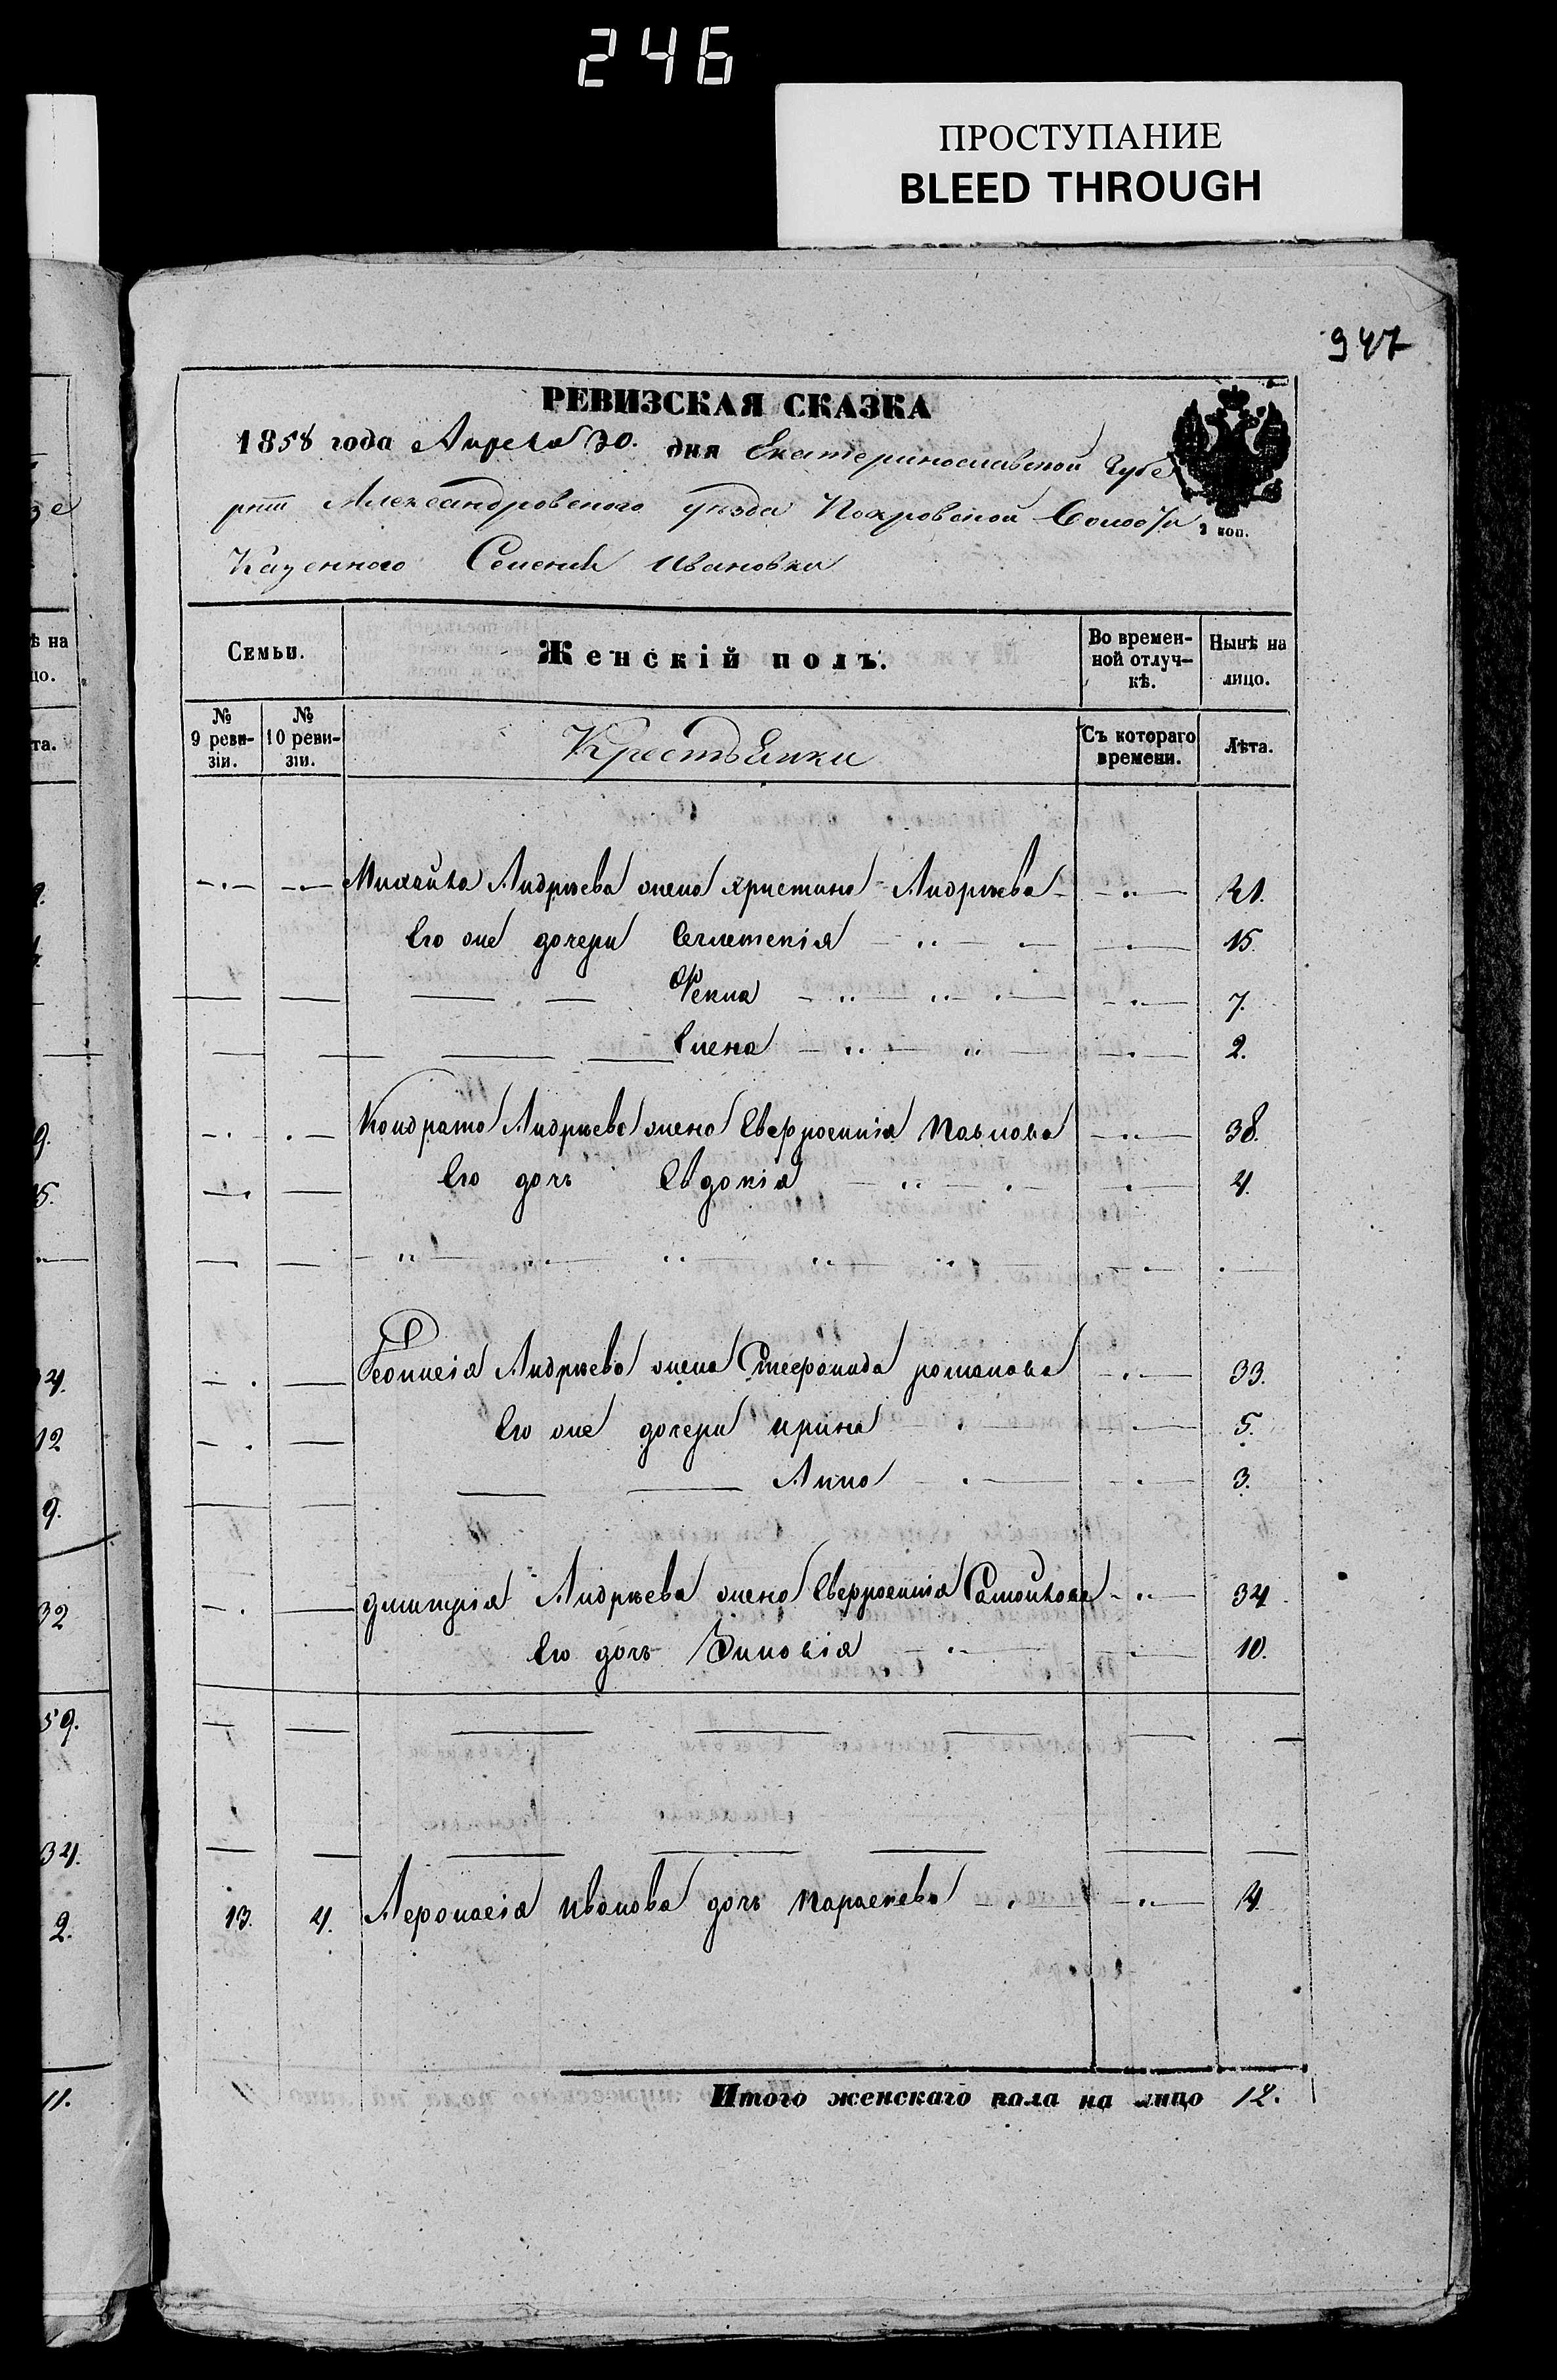 246
ПРОСТУПАНИЕ
BLEED THROUGH
947
РЕВИЗСКАЯ СКАЗКА
1858 года Апреля 30. дня Екатеринославской Губе
рніи Александровского уезда Покровской Волости
3 коп.
Казенного Селения Ивановки
Семьи. Женскій полъ. Во времен-ной отлуч-кѣ. Нынѣ на лицо.
№ 9 реви-зіи. № 10 реви-зіи. Крестьянки Съ котораго времени. Лѣта.
Михайла Андрѣева жена христина Андрѣева 41.
Его же дочери 15.
Фекла 7.
Елена 2.
Кондрата Андрѣева жена Евфросинія Павлова 38.
Его дочь Евдокія 4.
Феонисія Андрѣева жена Стефанида романова 33.
Его же дочери ирина 5.
Анна 3.
дмитрія Андрѣева жена Евфросинія Самойлова 34
Его дочь Зиновія 10.
13. 4. Афонасія иванова дочь Параскева 4.
Итого женскаго пола на лицо 12.
ѣ на
цо.
та.
9.
5.
12
9.
32
59.
34.
2.
11.